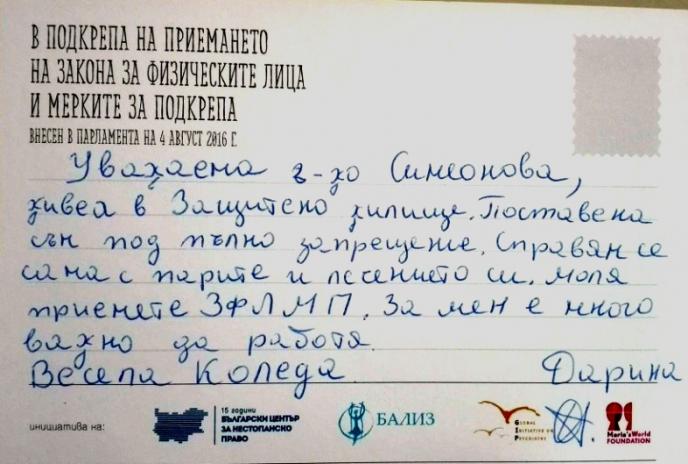 В ПОДКРЕПА НА ПРИЕМАНЕТО
НА ЗАКОНА ЗА ФИЗИЧЕСКИТЕ ЛИЦА
И МЕРКИТЕ ЗА ПОДКРЕПА
ВНЕСЕН В ПАРЛАМЕНТА НА 4 АВГУСТ 2016 Г.
Уважаема г-жо Симеонова,
живея в Защитено жилище. Поставена
сън под пълно запрещение. Справям се
сама с парите и лечението си. Моля
приемете ЗФЛМП. За мен е много
важно да работя.
Весела Коледа Дарина
инициатива на:
15 години
БЪЛГАРСКИ ЦЕНТЪР
ЗА НЕСТОПАНСКО
ПРАВО
БАЛИЗ
GLOBAL
INITIATIVE ON
PSYCHIATRY
Maria's World
FOUNDATION